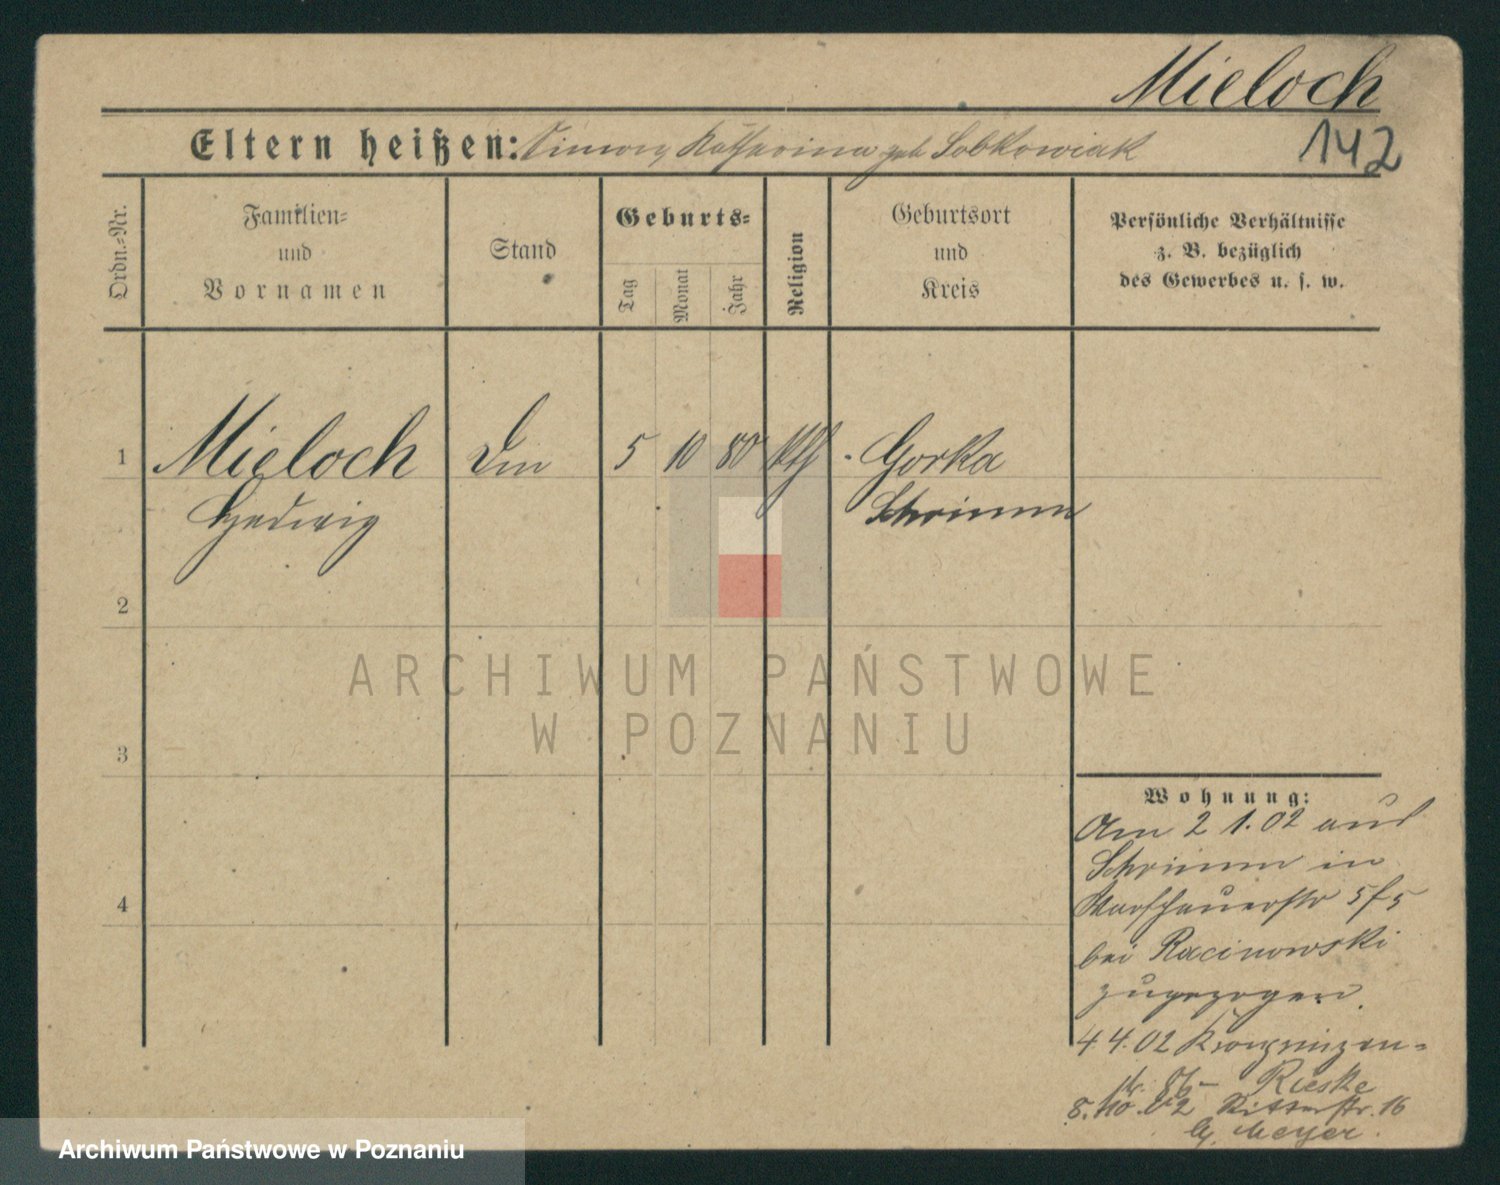 Mieloch
142
Eltern heißen: Simon, Katharina geb Sobkowiak
Ordn.=Nr.
Familien=
und
Vornamen
Stand
Geburts=
Tag
Monat
Jahr
Religion
Geburtsort
und
Kreis
Persönliche Verhältnisse
z. B. bezüglich
des Gewerbes u. s. w.
1
Mieloch
Hedwig
5
10
80
kth
Gorka
Schrimm
2
3
4
ARCHIWUM PAŃSTWOWE
W POZNANIU
Wohnung:
Am 2 1.02 aus
Schrimm in
Warschauerstr
bei Racinowski
zugezogen.
4 4.02 Kronprinzen=
str. 86 – Rieske
8.10.02 Ritterstr. 16
Meyer.
Archiwum Państwowe w Poznaniu